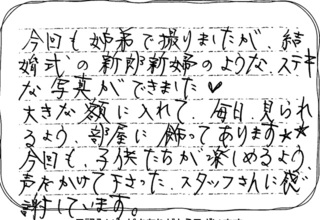 今回も姉弟で撮りましたが、結
婚式の新郎新婦のような、ステキ
な写真ができました♥
大きな額に入れて、毎日、見られ
るよう、部屋に飾ってあります★★
今回も、子供たちが楽しめるよう
声をかけて下さった、スタッフさんに感
謝しています。